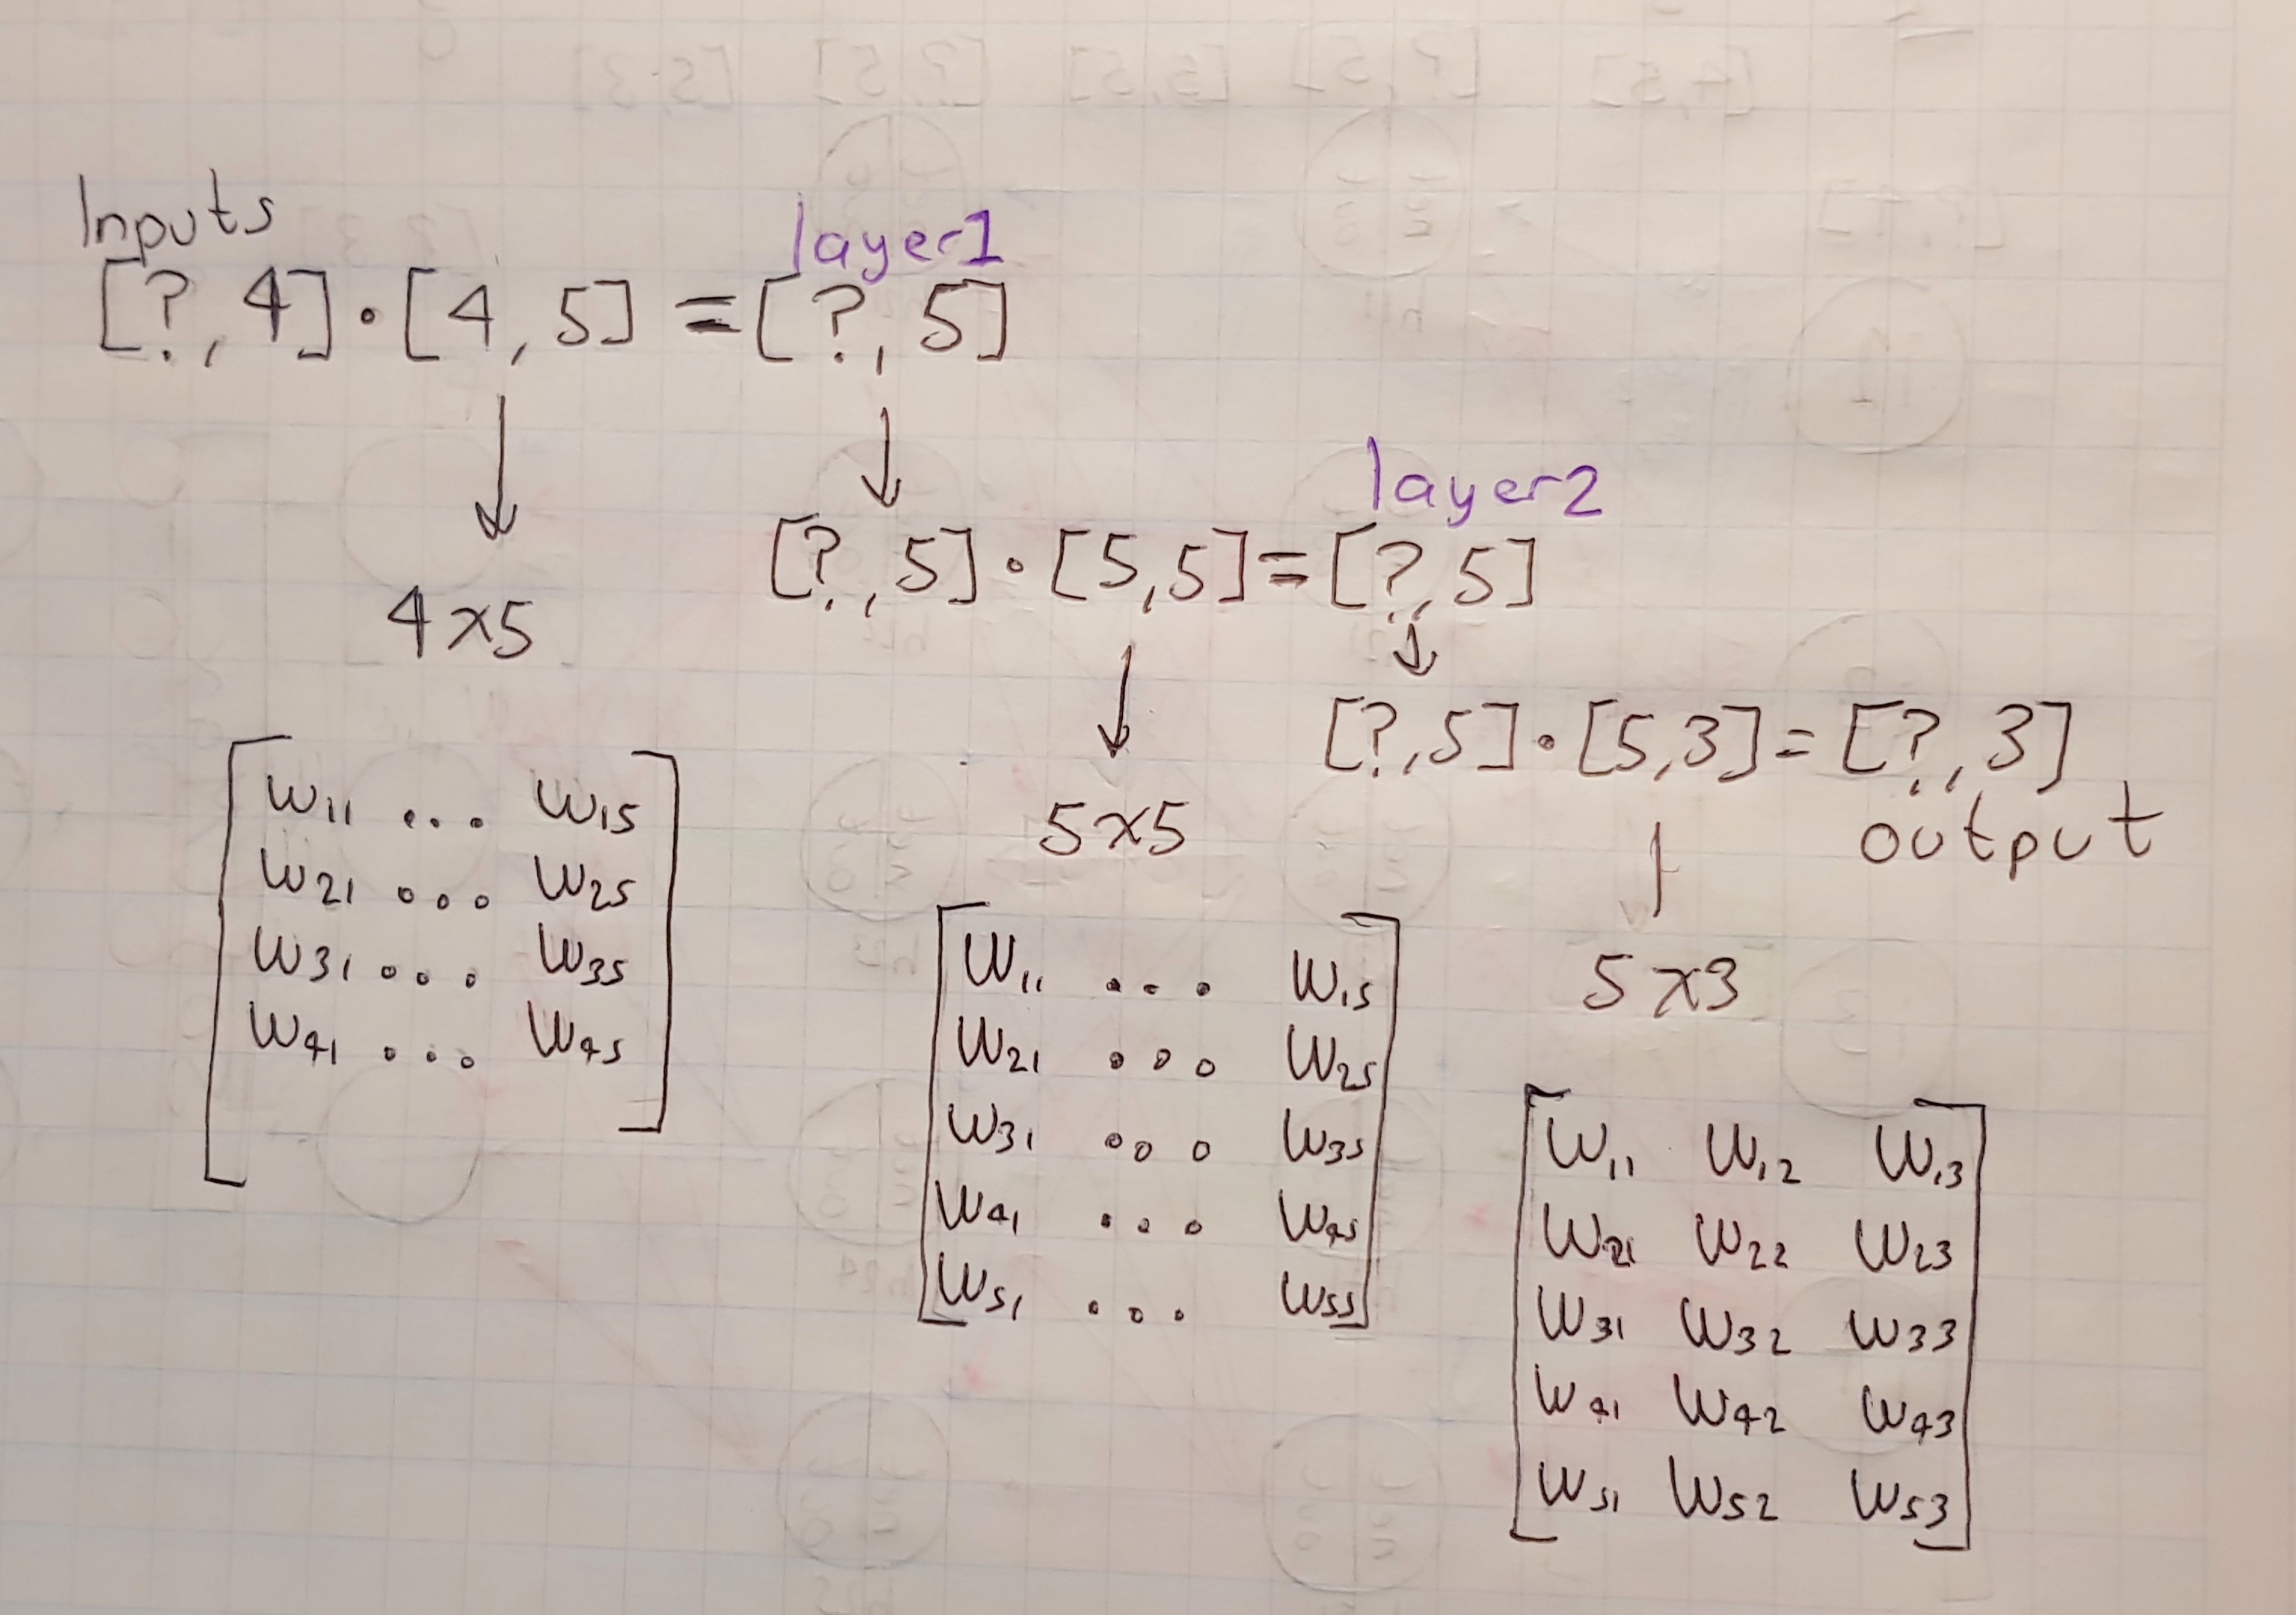 Inputs
layer1
[?,4]•[4,5]=[?,5]
layer2
[?,5]•[5,5]=[?,5]
4×5
[?,5]•[5,3]=[?,3]
output
5×5
5×3
W11 ... W15
W21 ... W25
W31 ... W35
W41 ... W45
W11 ... W15
W21 ... W25
W31 ... W35
W41 ... W45
W51 ... W55
W11 W12 W13
W21 W22 W23
W31 W32 W33
W41 W42 W43
W51 W52 W53